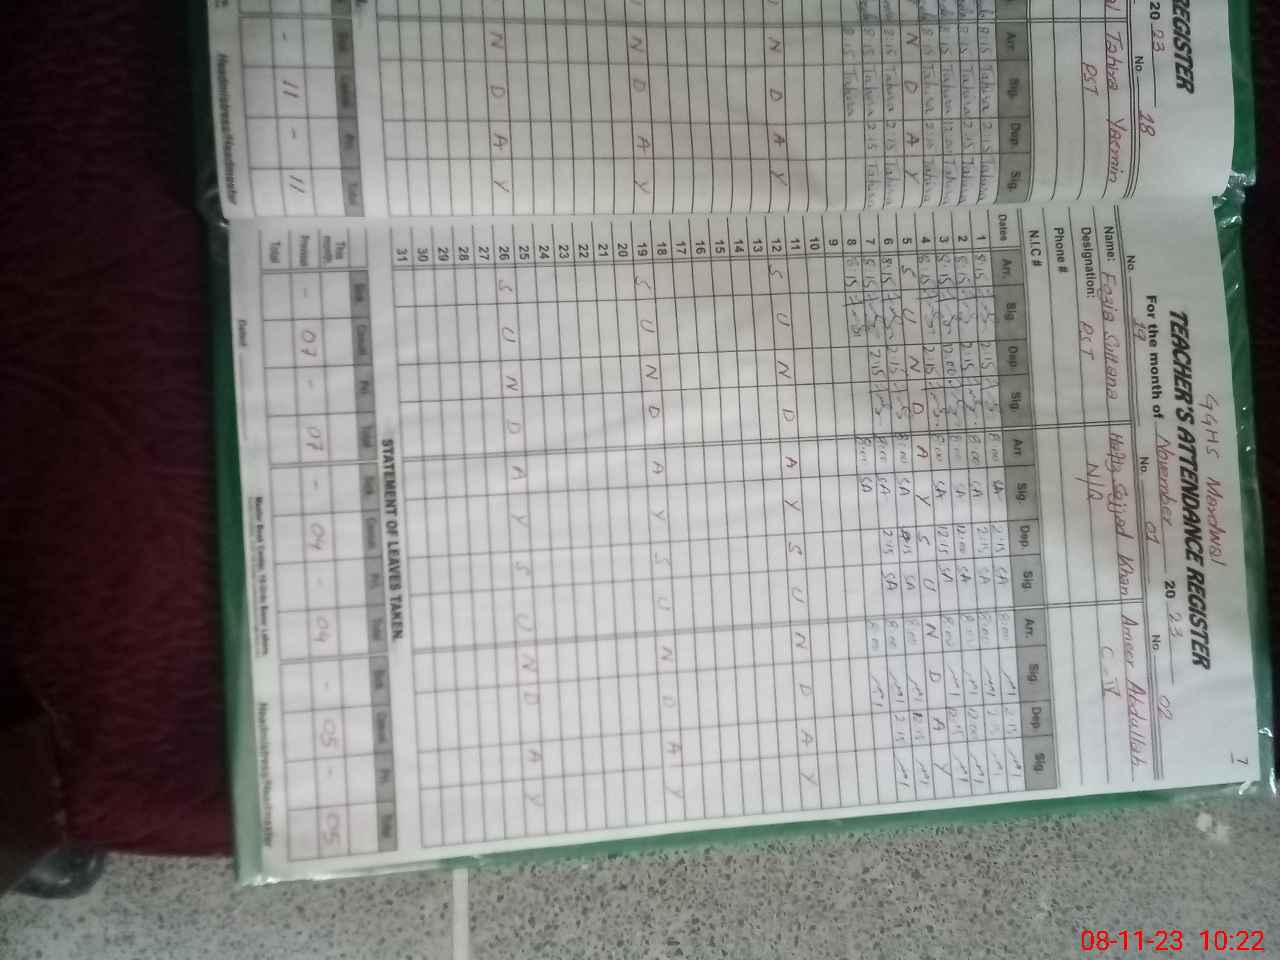 REGISTER
2023
No. 18
Tahira Yasmin
PST
Arr. Sig. Dep. Sig.
8:15 Tahira 2:15 Tahira
8:15 Tahira 2:15 Tahira
8:15 Tahira 12:00 Tahira
8:15 Tahira 2:15 Tahira
N D A Y
8:15 Tahira 2:15 Tahira
8:15 Tahira 2:15 Tahira
8:15 Tahira
N D A Y
N D A Y
N D A Y
- 11 - 11
Headmistress/Headmaster
7
GGHS
TEACHER'S ATTENDANCE REGISTER
For the month of November 2023
No. 19 No. 01 No. 02
Name: Fozia Sultana Hafiz Sajjad Khan Ameer Abdullah
Designation: PST N/Q C-IV
Phone #
N.I.C #
Dates Arr. Sig. Dep. Sig. Arr. Sig. Dep. Sig. Arr. Sig. Dep. Sig.
1 8:15 2:15 8:00 SA 2:15 SA 8:00 2:15
2 8:15 2:15 8:00 SA 2:15 SA 8:00 2:15
3 8:15 12:00 8:00 SA 12:00 SA 8:00 12:00
4 8:15 2:15 8:00 SA 12:15 SA 8:00 12:15
5 S U N D A Y S U N D A Y
6 8:15 2:15 8:00 SA SA 8:00
7 8:15 2:15 8:00 SA 2:15 SA 8:00 2:15
8 8:15 8:00 SA 8:00
9
10
11
12 S U N D A Y S U N D A Y
13
14
15
16
17
18
19 S U N D A Y S U N D A Y
20
21
22
23
24
25
26 S U N D A Y S U N D A Y
27
28
29
30
31
STATEMENT OF LEAVES TAKEN.
Sick Casual Pri. Total Sick Casual Pri. Total Sick Casual Pri. Total
This month
Previous - 07 - 07 - 04 - 04 - 05 - 05
Total
Dated
Headmistress/Headmaster
08-11-23 10:22